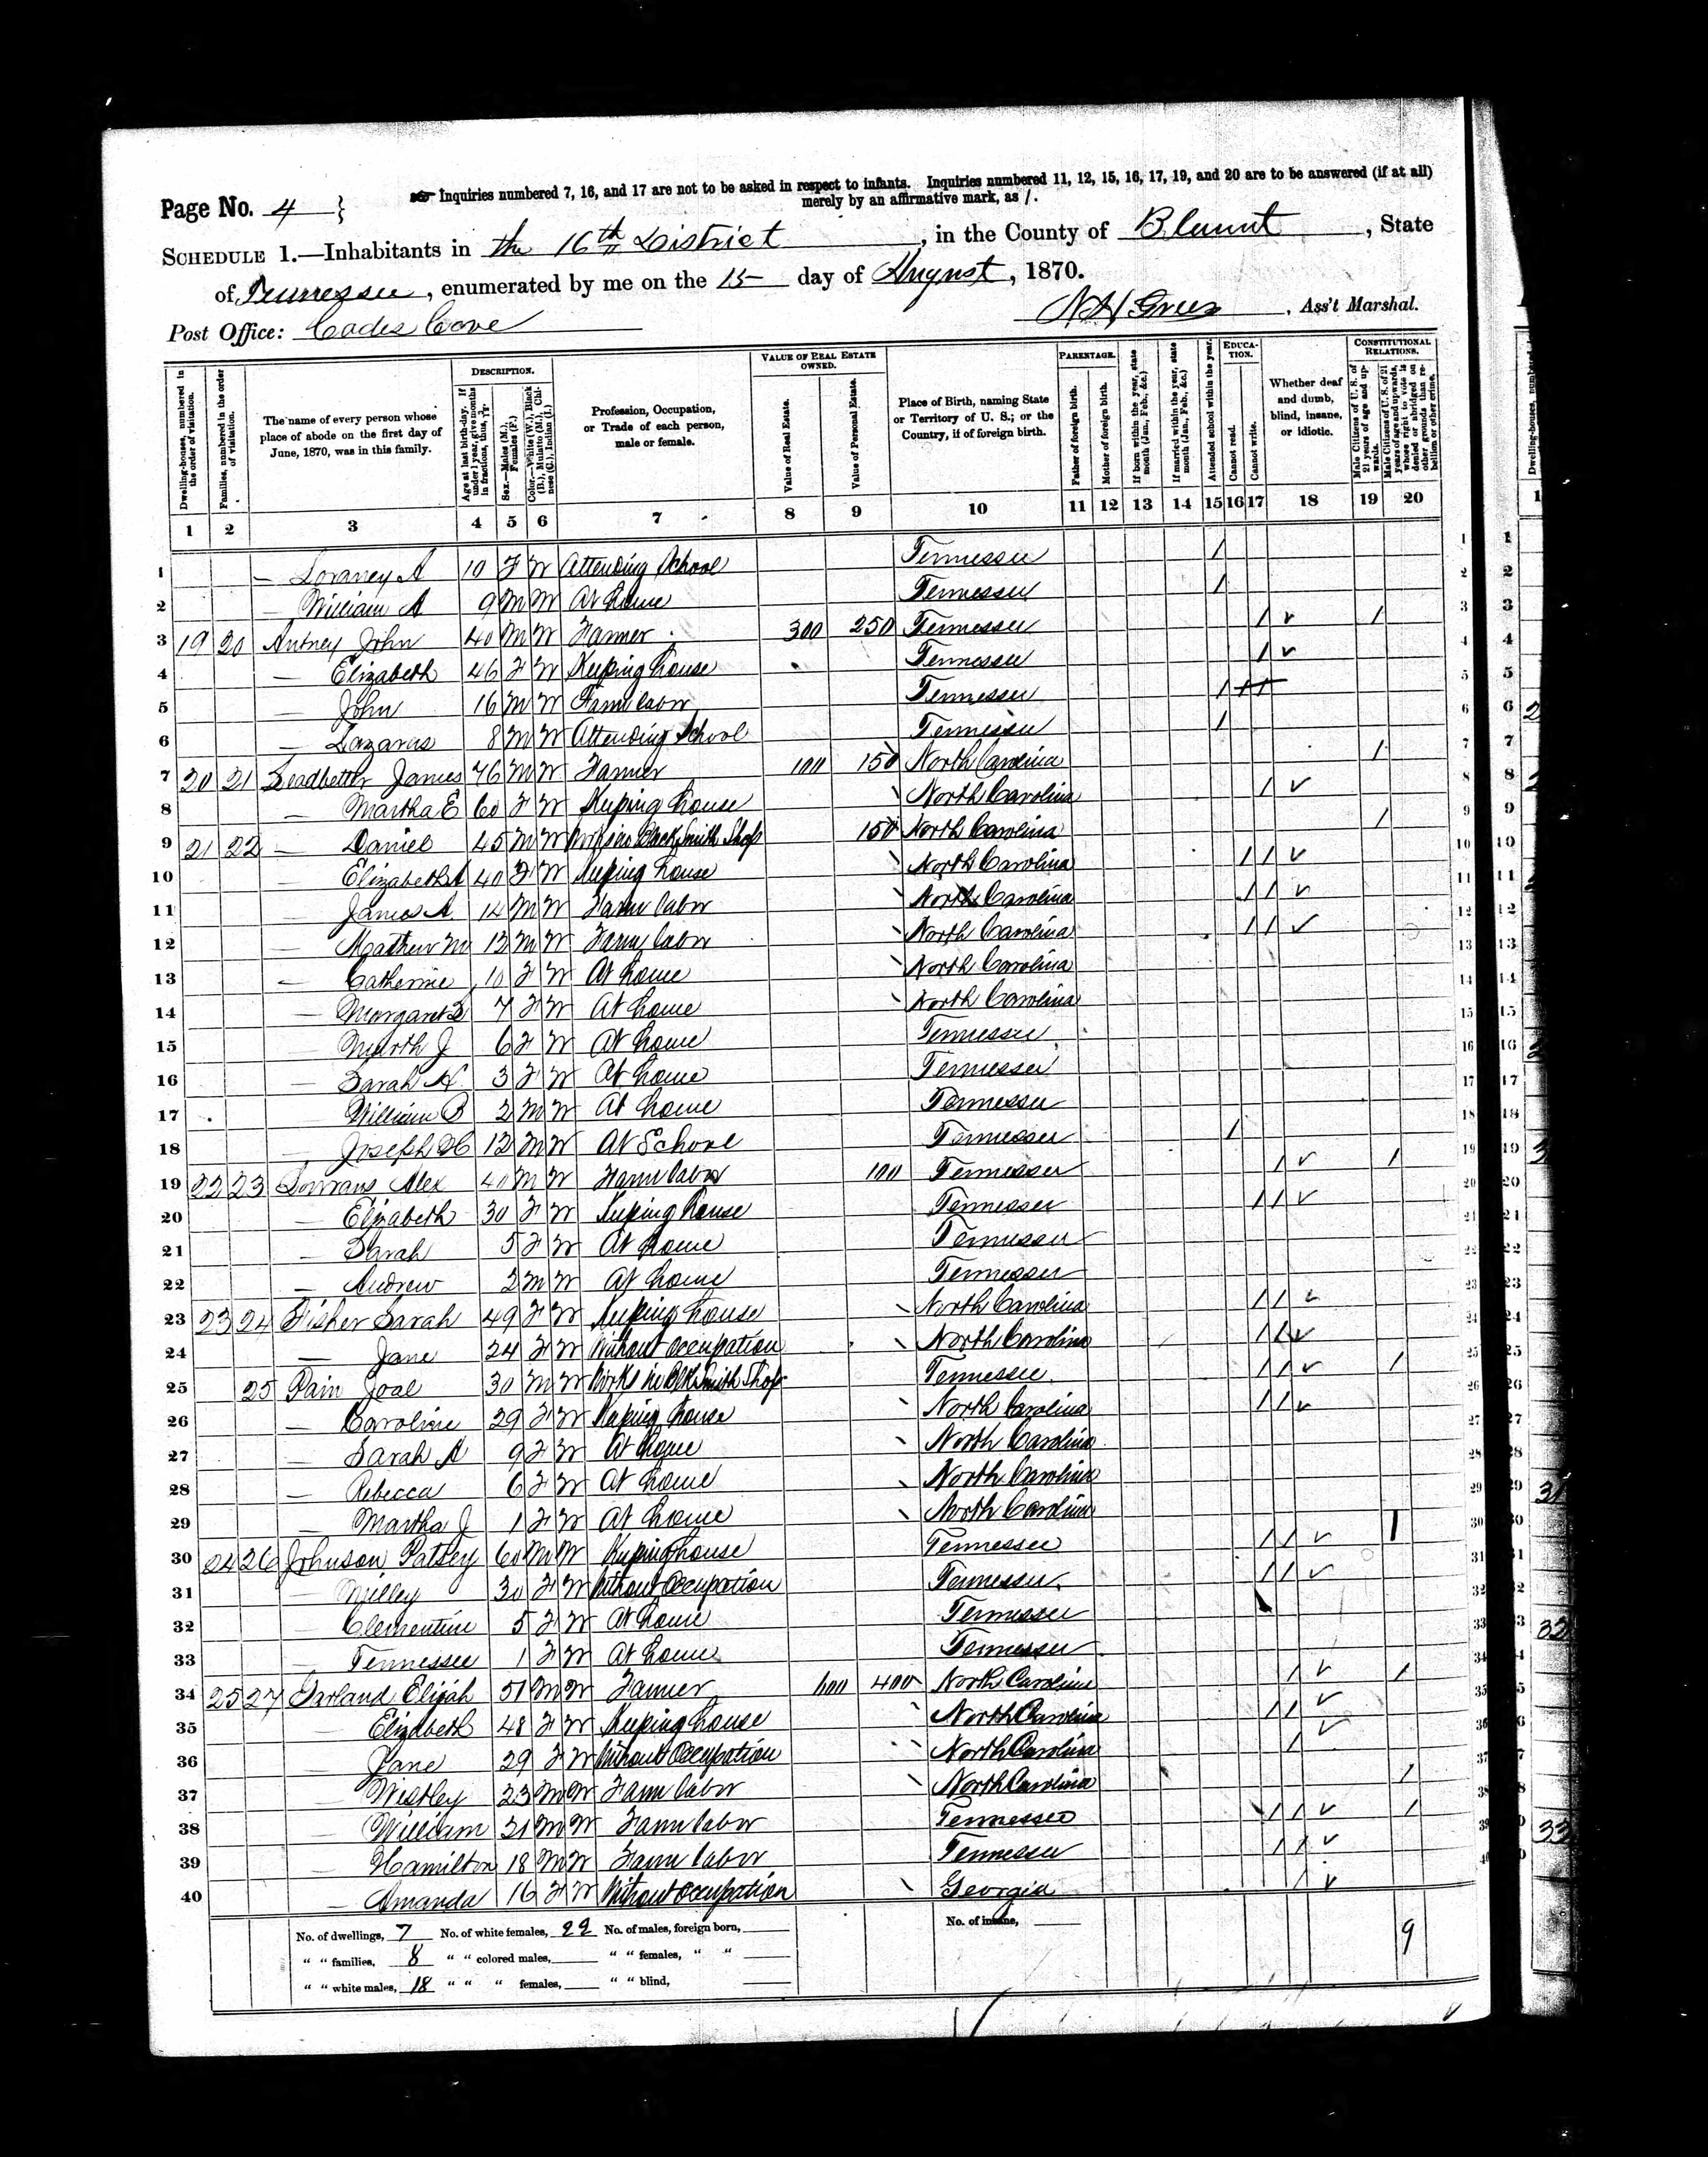 Page No. 4 }
Inquiries numbered 7, 16, and 17 are not to be asked in respect to infants. Inquiries numbered 11, 12, 15, 16, 17, 19, and 20 are to be answered (if at all)
merely by an affirmative mark, as /.
SCHEDULE 1.—Inhabitants in the 16th District, in the County of Blount, State
of Tennessee, enumerated by me on the 15 day of August, 1870.
Post Office: Cades Cove
, Ass't Marshal.
Dwelling-houses, numbered in the order of visitation.
Families, numbered in the order of visitation.
The name of every person whose place of abode on the first day of June, 1870, was in this family.
DESCRIPTION.
Age at last birth-day. If under 1 year, give months in fractions, thus, 3/12.
Sex.—Males (M.), Females (F.)
Color.—White (W.), Black (B.), Mulatto (M.), Chinese (C.), Indian (I.)
Profession, Occupation, or Trade of each person, male or female.
VALUE OF REAL ESTATE OWNED.
Value of Real Estate.
Value of Personal Estate.
Place of Birth, naming State or Territory of U. S.; or the Country, if of foreign birth.
PARENTAGE.
Father of foreign birth.
Mother of foreign birth.
If born within the year, state month (Jan., Feb., &c.)
If married within the year, state month (Jan., Feb., &c.)
Attended school within the year.
EDUCATION.
Cannot read.
Cannot write.
Whether deaf and dumb, blind, insane, or idiotic.
CONSTITUTIONAL RELATIONS.
Male Citizens of U. S. of 21 years of age and upwards.
Male Citizens of U. S. of 21 years of age and upwards, whose right to vote is denied or abridged on other grounds than rebellion or other crime.
1 2 3 4 5 6 7 8 9 10 11 12 13 14 15 16 17 18 19 20
1 — A 10 F W Attending School Tennessee / 1
2 — William A 9 M W At home Tennessee / 2
3 19 20 John 40 M W Farmer 300 250 Tennessee / ✓ / 3
4 — Elizabeth 46 F W Keeping house Tennessee / ✓ 4
5 — John 16 M W Farm labor Tennessee / / / 5
6 — Lazarus 8 M W Attending School Tennessee / 6
7 20 21 Leadbetter James 76 M W Farmer 100 150 North Carolina / 7
8 — Martha E 60 F W Keeping house North Carolina / ✓ 8
9 21 22 — Daniel 45 M W Works in Black Smith Shop 150 North Carolina / 9
10 — Elizabeth A 40 F W Keeping house North Carolina / / ✓ 10
11 — James A 14 M W Farm labor North Carolina / / ✓ 11
12 — Mathew M 12 M W Farm labor North Carolina / / ✓ 12
13 — Catherine 10 F W At home North Carolina 13
14 — Margaret 7 F W At home North Carolina 14
15 — Marth J 6 F W At home Tennessee 15
16 — Sarah 3 F W At home Tennessee 16
17 — William B 2 M W At home Tennessee 17
18 — Joseph H 12 M W At School Tennessee / 18
19 22 23 Alex 40 M W Farm labor 100 Tennessee / ✓ / 19
20 — Elizabeth 30 F W Keeping house Tennessee / / ✓ 20
21 — Sarah 5 F W At home Tennessee 21
22 — Andrew 2 M W At home Tennessee 22
23 23 24 Fisher Sarah 49 F W Keeping house North Carolina / / ✓ 23
24 — Jane 24 F W Without occupation North Carolina / / ✓ 24
25 25 Pain Joal 30 M W Works in Blk Smith Shop Tennessee / / ✓ / 25
26 — Caroline 29 F W Keeping house North Carolina / / ✓ 26
27 — Sarah A 9 F W At home North Carolina 27
28 — Rebecca 6 F W At home North Carolina 28
29 — Martha J 1 F W At home North Carolina 29
30 24 26 Johnson Patsey 60 M W Keeping house Tennessee / / ✓ / 30
31 — Milley 30 F W Without Occupation Tennessee / / ✓ 31
32 — Clementine 5 F W At home Tennessee 32
33 — Tennessee 1 F W At home Tennessee 33
34 25 27 Garland Elijah 51 M W Farmer 600 400 North Carolina / ✓ / 34
35 — Elizabeth 48 F W Keeping house North Carolina / / ✓ 35
36 — Jane 29 F W Without Occupation North Carolina / ✓ 36
37 — Westley 23 M W Farm labor North Carolina / 37
38 — William 21 M W Farm labor Tennessee / / ✓ / 38
39 — Hamilton 18 M W Farm labor Tennessee / / ✓ 39
40 — Amanda 16 F W Without occupation Georgia / ✓
No. of dwellings, 7 No. of white females, 22 No. of males, foreign born, No. of insane, 9
" " families, 8 " " colored males, " " females, " "
" " white males, 18 " " " females, " " blind,